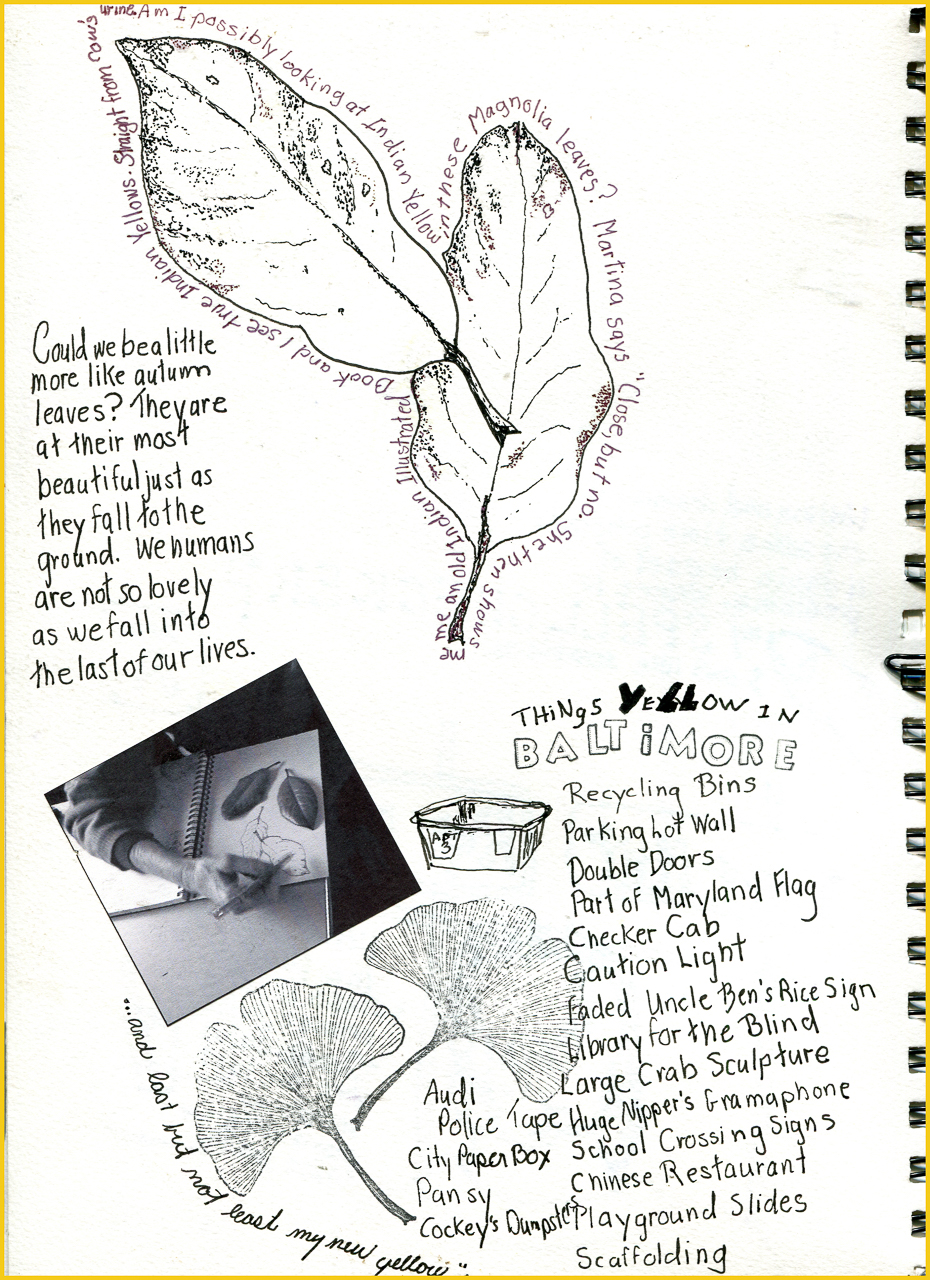 Am I possibly looking at Indian Yellow in these Magnolia leaves? Martina says "Close, but no. She then shows me me an old Indian Illustrated Book and I see true Indian Yellows. Straight from cow's urine.
Could we be a little
more like autumn
leaves? They are
at their most
beautiful just as
they fall to the
ground. We humans
are not so lovely
as we fall into
the last of our lives.
THiNgS YELLOW IN
BALTiMORE
Recycling Bins
Parking Lot Wall
Double Doors
Part of Maryland Flag
Checker Cab
Caution Light
Faded Uncle Ben's Rice Sign
Library for the Blind
Large Crab Sculpture
Huge Nipper's Gramaphone
School Crossing Signs
Chinese Restaurant
Playground Slides
Scaffolding
Audi
Police Tape
City Paper Box
Pansy
Cockey's Dumpsters
...and last but not least my new yellow..